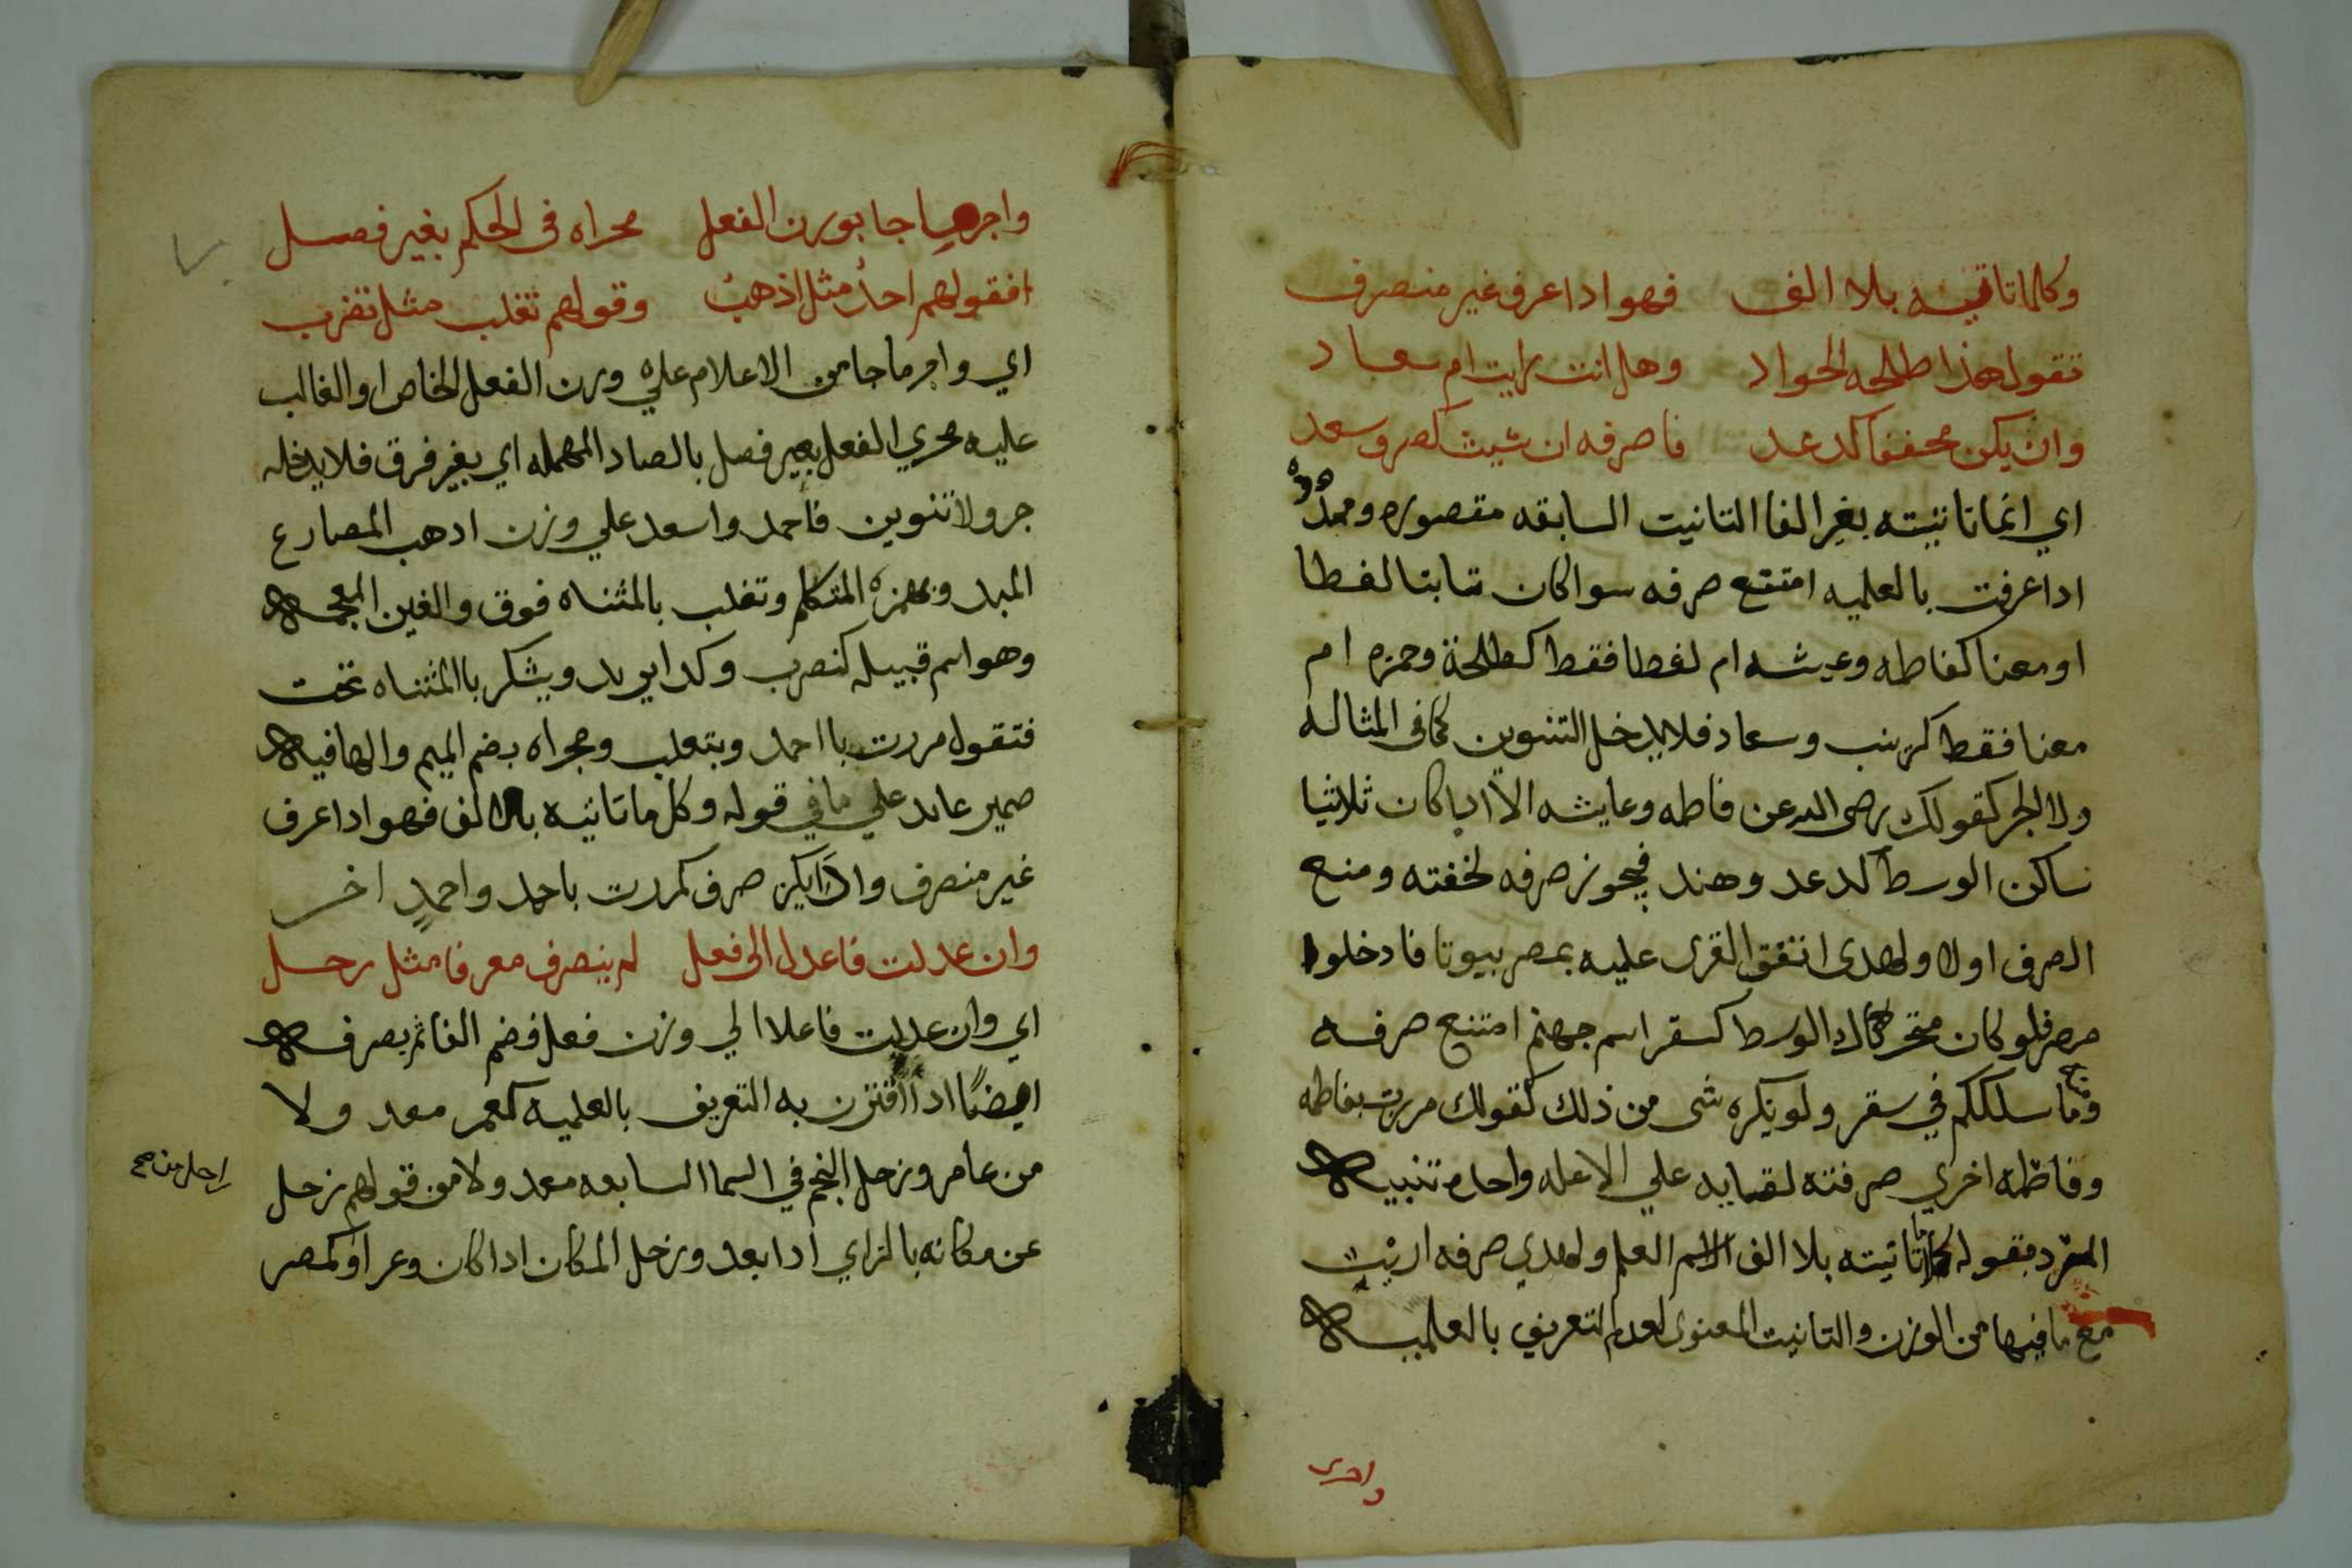 وكلما تانيثه بلا الف فهو اذا عرف غير منصرف
تقول هذا طلحه الجواد وهل انت رايت ام سعاد
وان يكن مخففا كدعد فاصرفه ان شيت كصرف سعد
اي انما تانيثه بغير الفا التانيت السابقه مقصوره وممدوده
اذا عرفت بالعلميه امتنع صرفه سوا كان ثابتا لفظا
او معنا كفاطمه وعيشه ام لفظا فقط كطلحة وحمزه ام
معنا فقط كزينب وسعاد فلا يدخل التنوين كما في المثاله
ولا الجر كقولك رضي الله عن فاطمه وعايشه الا اذا كان ثلاثيا
ساكن الوسط كدعد وهند فيجوز صرفه لخفته ومنع
الصرف اولا ولهدى اتفق القرى عليه بمصر بيوتا فادخلوا
مصر فلو كان متحركا الوسط كسقر اسم جهنم امتنع صرفه
وما سلككم في سقر ولو نكره شى من ذلك كقولك مررت بفاطمه
وفاطمه اخري صرفته لقايه علي الاعله واحده تنبيه
المفرد بقوله كلما تانيثه بلا الف الاسم العلم ولهدي صرفه ارنب
مع ما فيها من الوزن والتانيت المعنوى لعدم التعريف بالعلميه
واجرى
واجرها جا بوزن الفعل مجراه في الحكم بغير فصل
فقولهم احمد مثل اذهب وقولهم تغلب مثل تضرب
اي واجر ما جا من الاعلام علي وزن الفعل الخاص او الغالب
عليه مجري الفعل بغير فصل بالصاد المهمله اي بغير فرق فلا يدخله
جر ولا تنوين فاحمد واسعد علي وزن اذهب المضارع
المبدو بهمزة المتكلم وتغلب بالمثناه فوق والغين المعجمه
وهو اسم قبيله كنضرب وكذا يزيد ويشكر باالمثناه تحت
فتقول مررت با احمد وبتغلب ومجراه بضم الميم والها فيه
ضمير عايد علي ما في قوله وكل ما تانيثه بلا الف فهو اذا عرف
غير منصرف واذا يكن صرف كمررت باحمد واحمدٍ اخر
وان عدلت فاعلا الى فعل لم ينصرف معرفا مثل زحل
اي وان عدلت فاعلا الي وزن فعل فضم الفا ثم يصرف
ايضًا اذا اقترن به التعريف بالعلميه كعمر معد ولا
من عامر وزحل النجم في السما السابعه معد ولا من قولهم زحل
زاحل من صح
عن مكانه بالزاي اذا بعد وزحل المكان اذا كان وعرا وكمصر